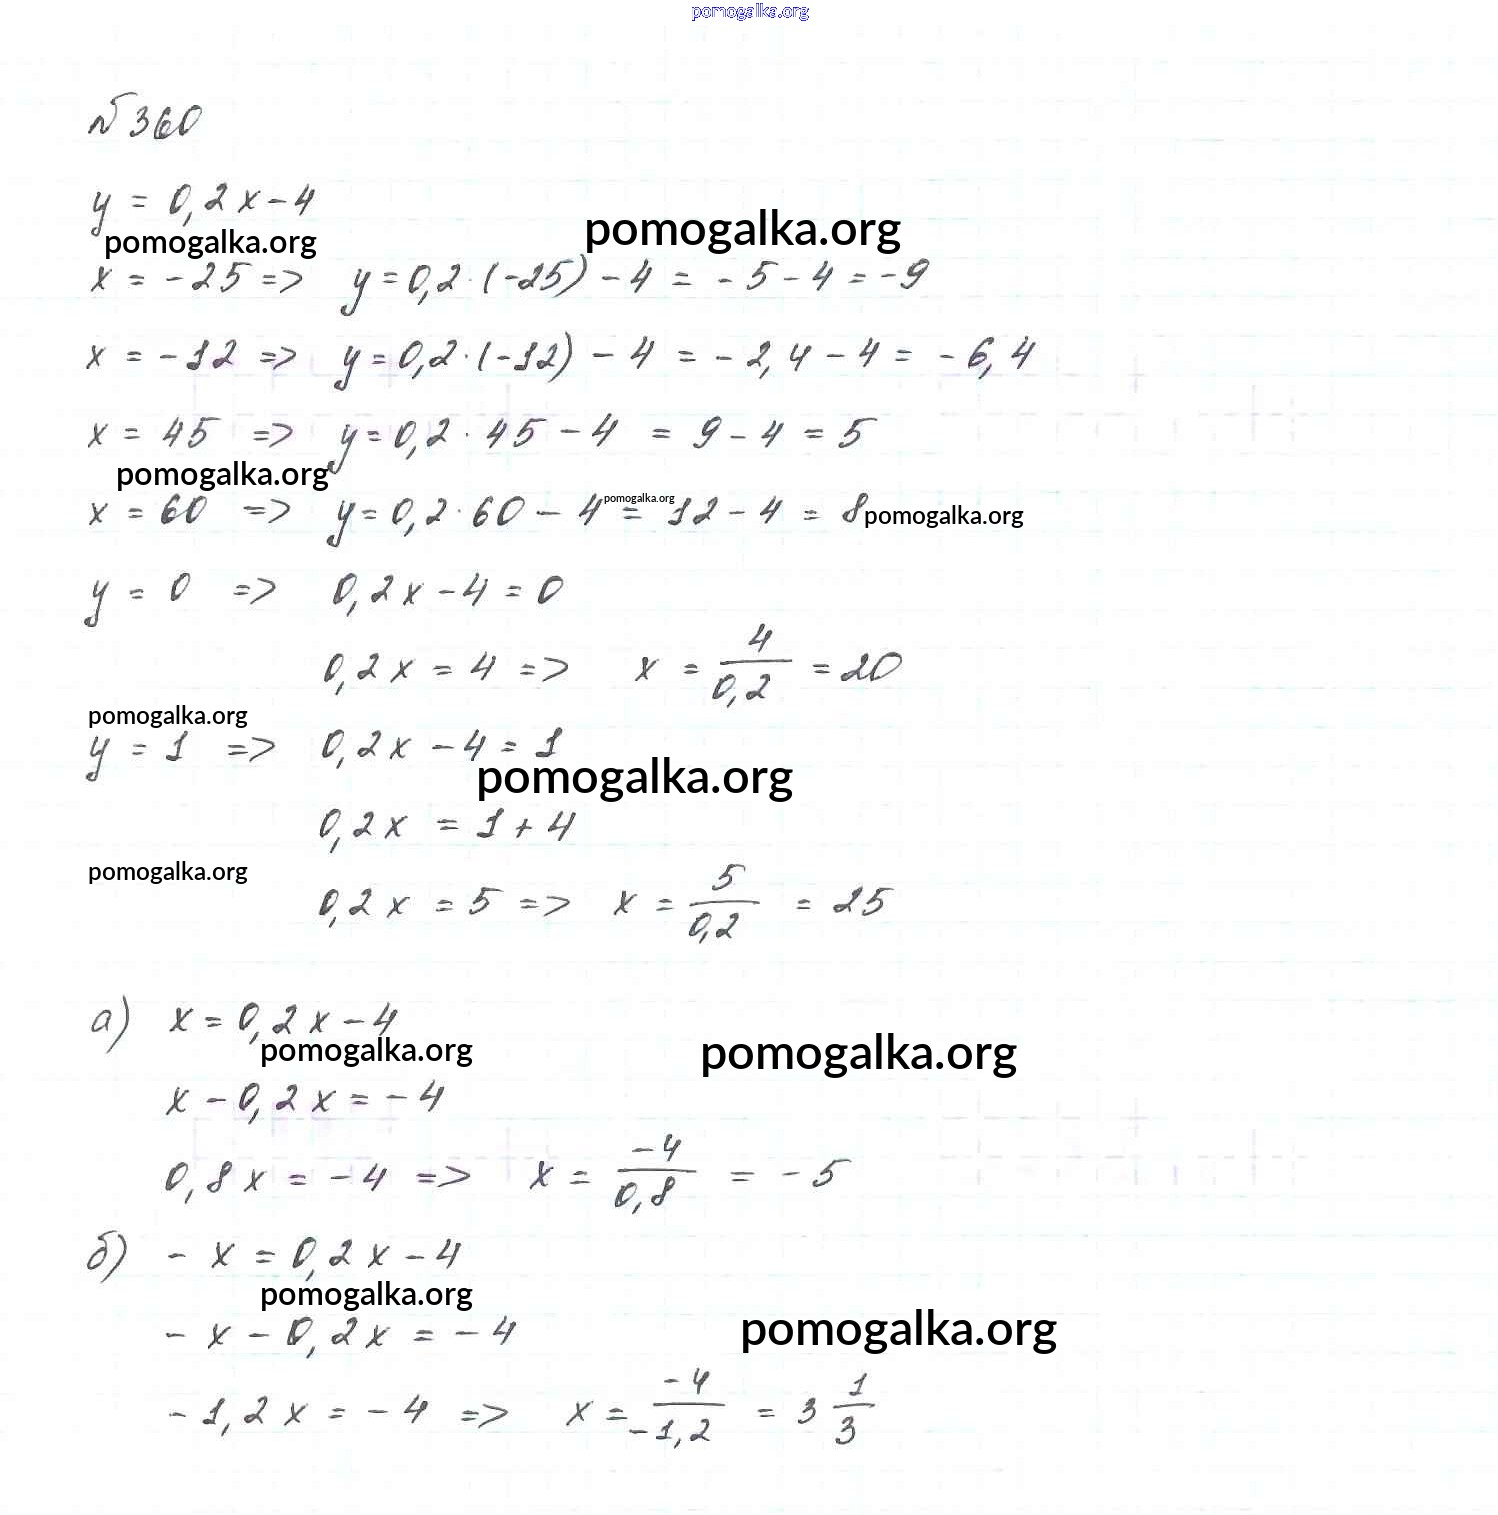 pomogalka.org
№360
y = 0,2x - 4
pomogalka.org pomogalka.org
x = -25 => y = 0,2 · (-25) - 4 = -5 - 4 = -9
x = -12 => y = 0,2 · (-12) - 4 = -2,4 - 4 = -6,4
x = 45 => y = 0,2 · 45 - 4 = 9 - 4 = 5
pomogalka.org
pomogalka.org
x = 60 => y = 0,2 · 60 - 4 = 12 - 4 = 8 pomogalka.org
y = 0 => 0,2x - 4 = 0
0,2x = 4 => x = 4/0,2 = 20
pomogalka.org
y = 1 => 0,2x - 4 = 1
pomogalka.org
0,2x = 1 + 4
pomogalka.org
0,2x = 5 => x = 5/0,2 = 25
а) x = 0,2x - 4
pomogalka.org pomogalka.org
x - 0,2x = -4
0,8x = -4 => x = -4/0,8 = -5
б) -x = 0,2x - 4
pomogalka.org
-x - 0,2x = -4
pomogalka.org
-1,2x = -4 => x = -4/-1,2 = 3 1/3